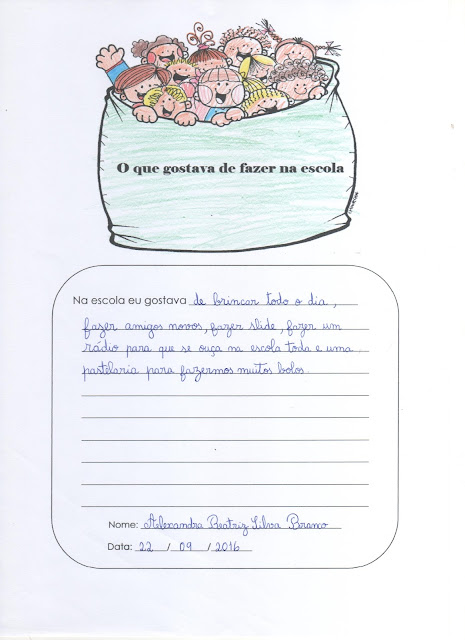 O que gostava de fazer na escola
Na escola eu gostava de brincar todo o dia,
fazer amigos novos, fazer slide, fazer um
rádio para que se ouça na escola toda e uma
pastelaria para fazermos muitos bolos.
Nome: Alexandra Beatriz Silva
Data: 22 / 09 / 2016